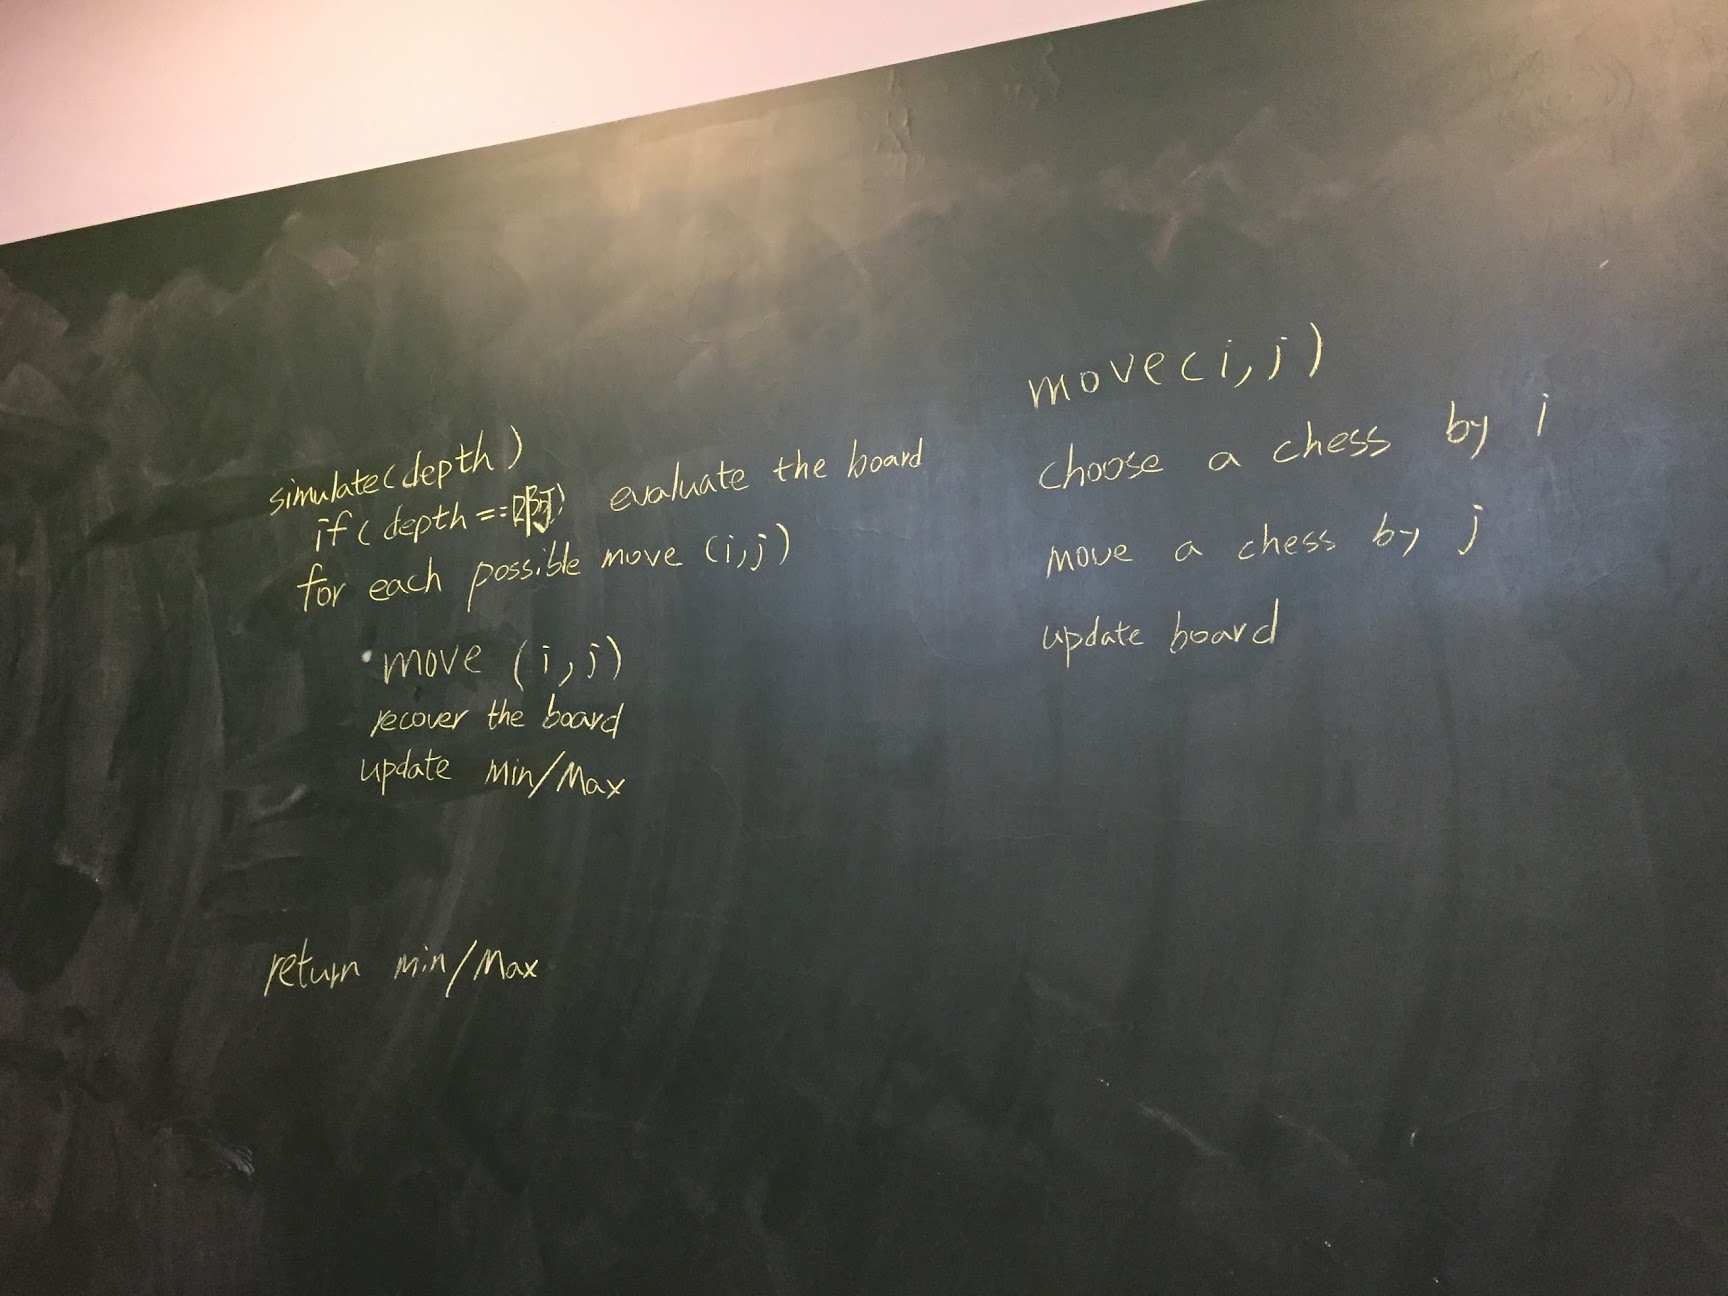 simulate(depth)
if(depth==啊) evaluate the board
for each possible move (i,j)
move (i,j)
recover the board
update min/Max
return min/Max
move(i,j)
choose a chess by i
move a chess by j
update board